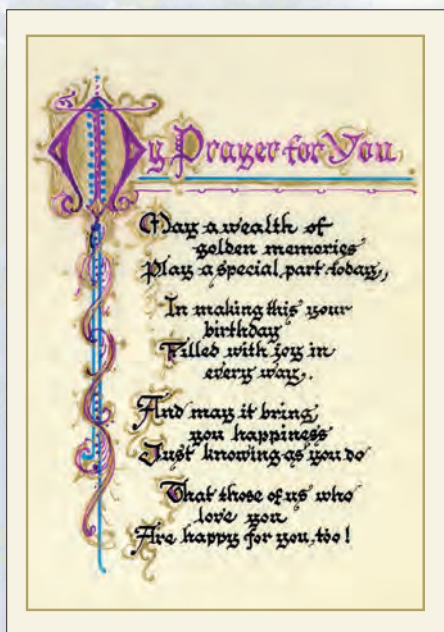 My Prayer for You
May a wealth of
golden memories
Play a special part today,
In making this your
birthday
Filled with joy in
every way.
And may it bring
you happiness
Just knowing as you do
That those of us who
love you
Are happy for you, too!